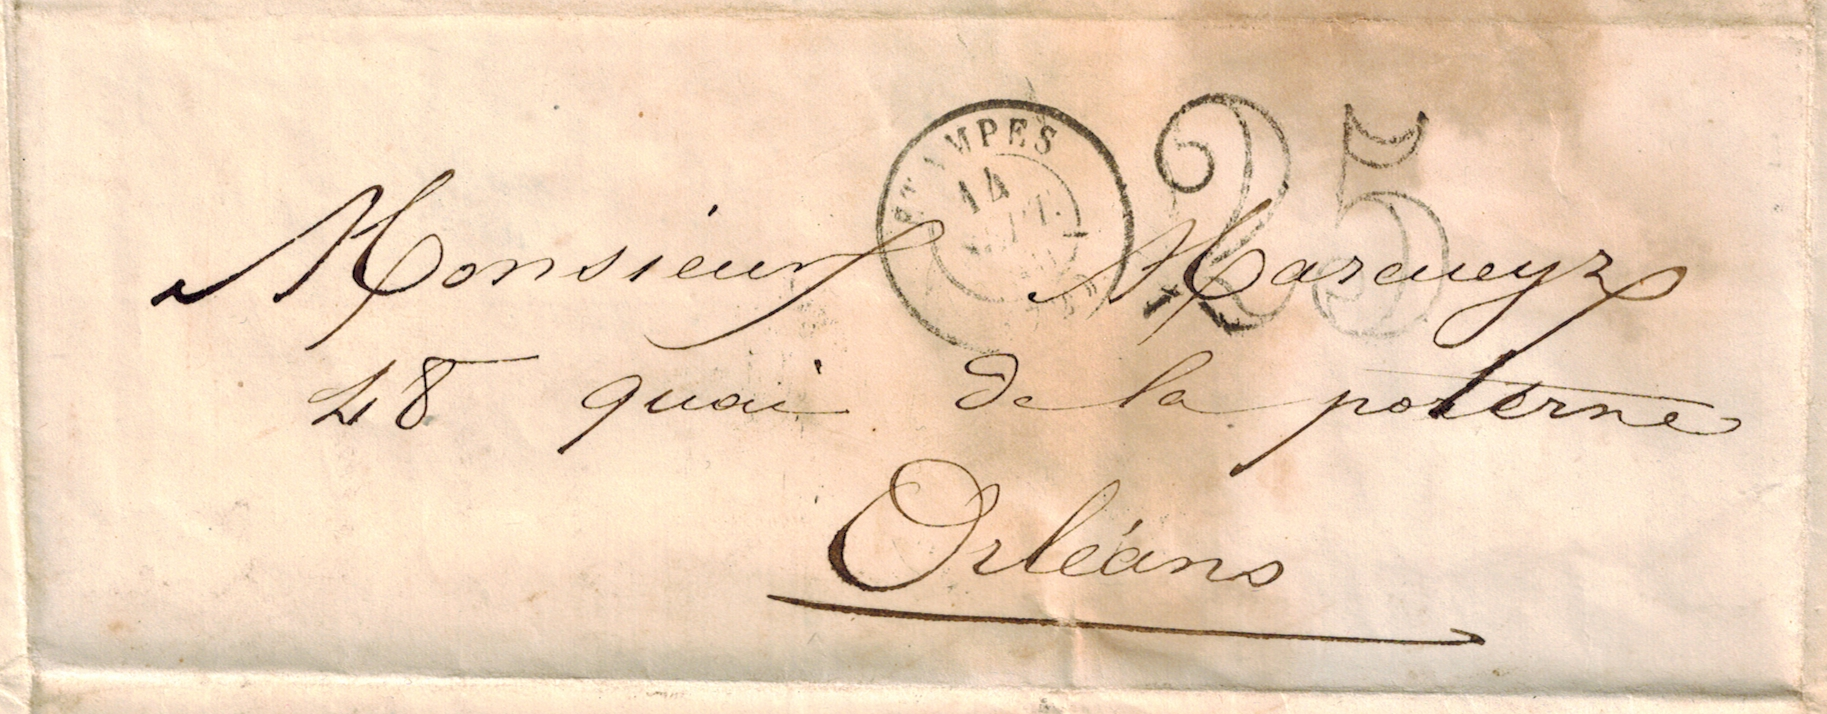 ETAMPES
14
SEPT.
25
Monsieur Marcueyz
48 quai de la poterne
Orléans